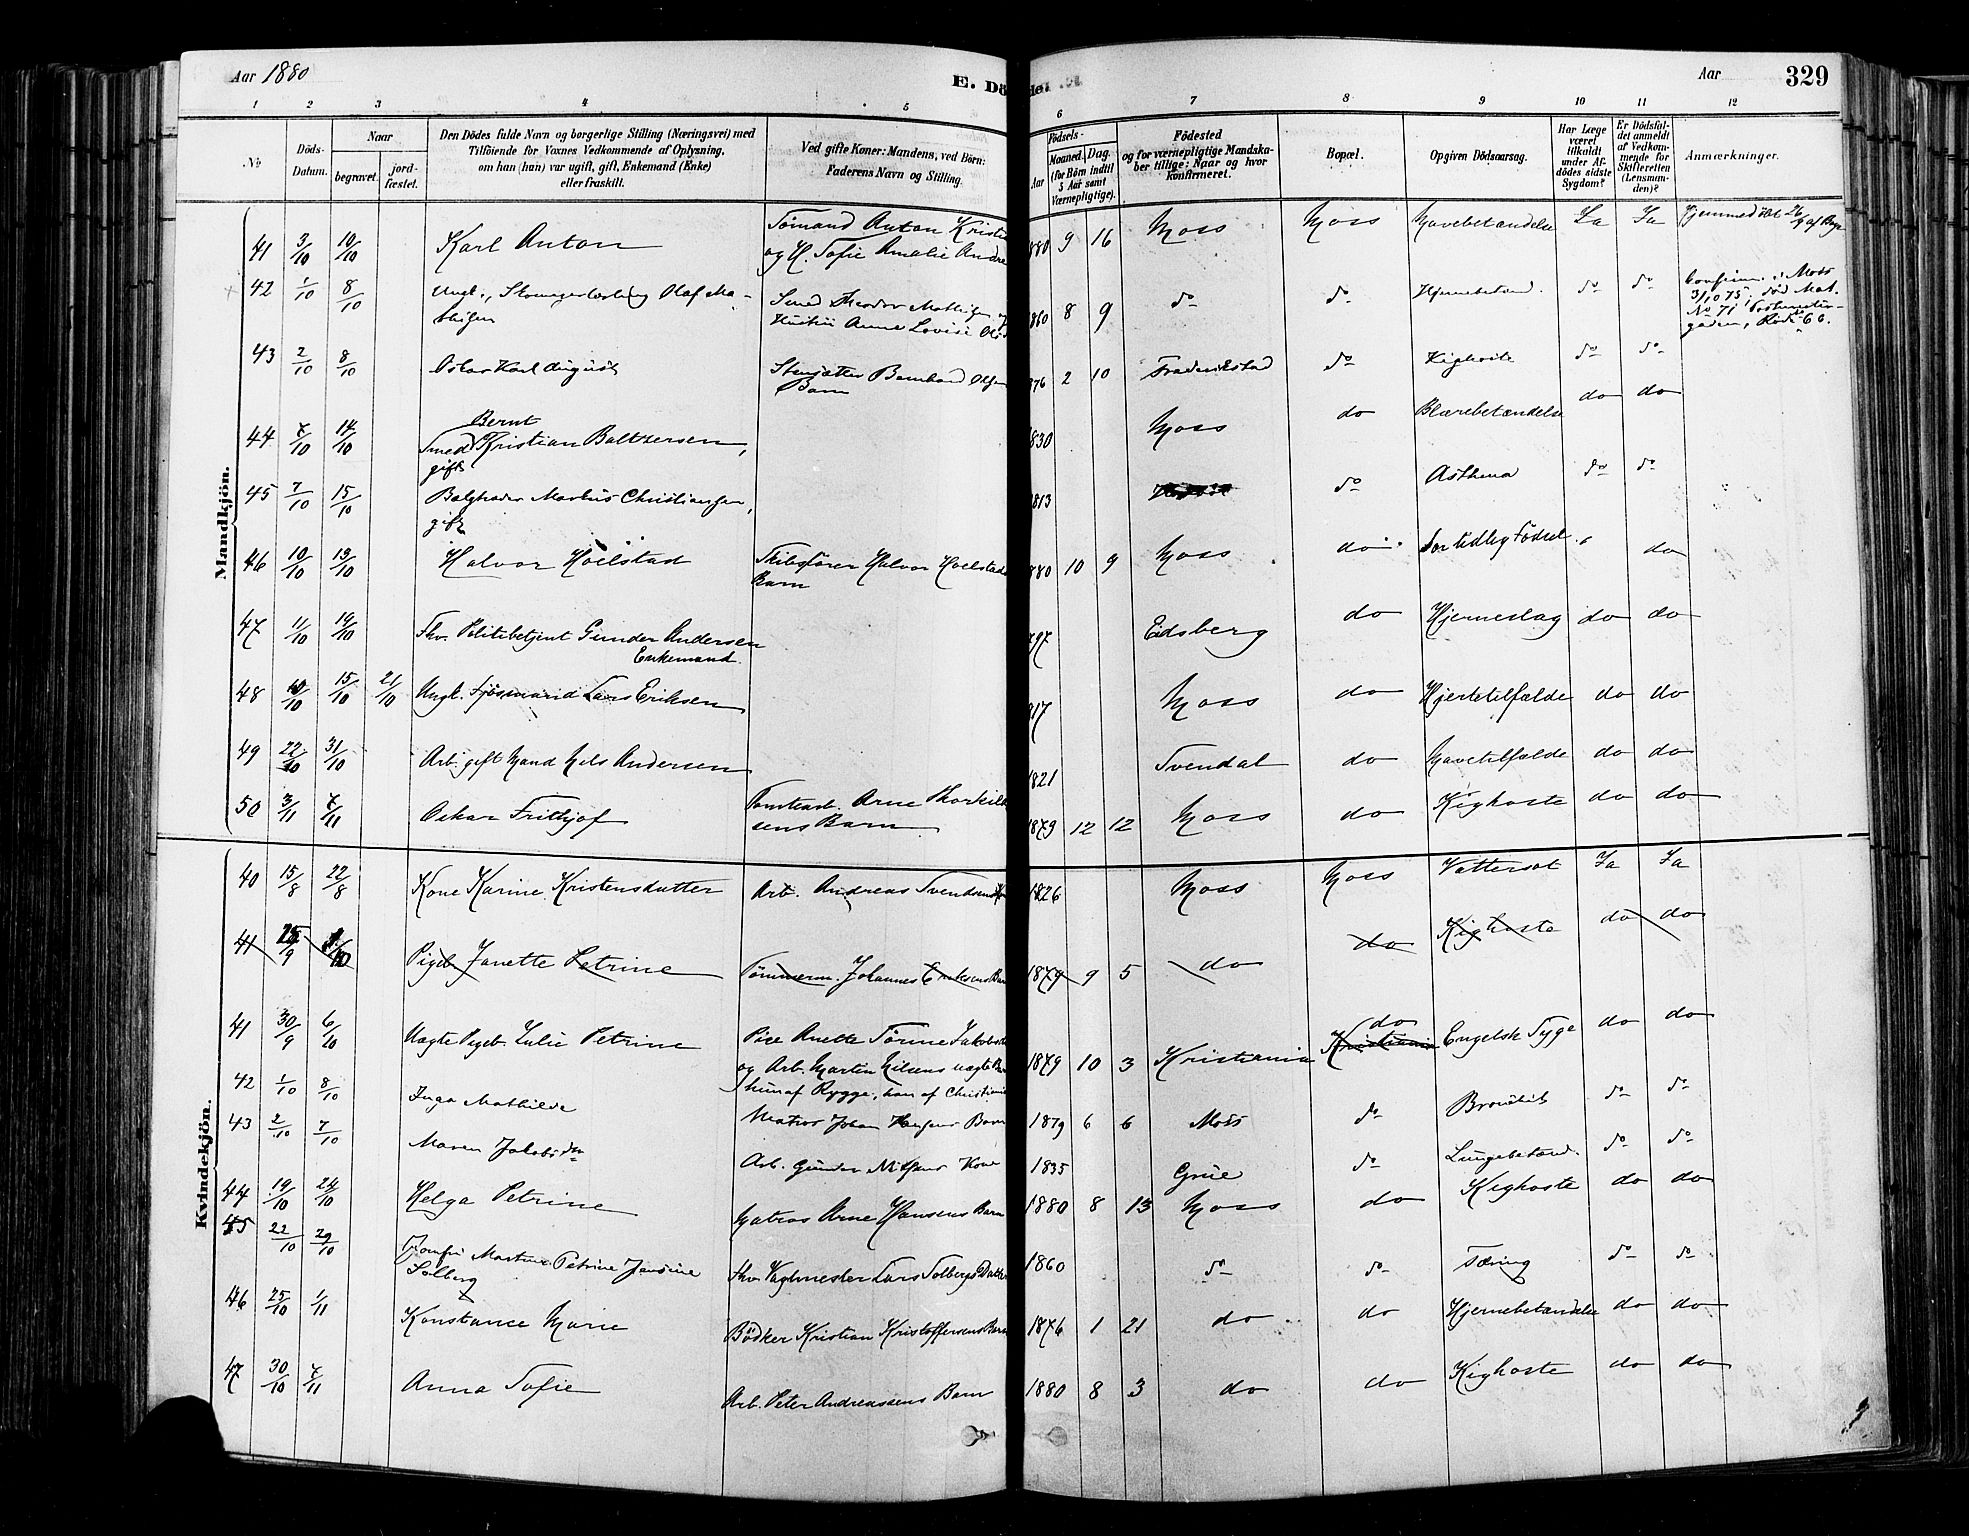 Aar 1880
E. Dö
Aar
329
1 2 3 4 5 6 7 8 9 10 11 12
No
Döds-Datum.
Naar
begravet.
jord-fæstet.
Den Dödes fulde Navn og borgerlige Stilling (Næringsvei) med
Tilföiende for Voxnes Vedkommende af Oplysning,
om han (hun) var ugift, gift, Enkemand (Enke)
eller fraskilt.
Ved gifte Koner: Mandens, ved Börn:
Faderens Navn og Stilling.
Födsels-
Aar
Maaned. Dag.
(for Börn indtil
5 Aar samt
Værnepligtige).
Födested
og for værnepligtige Mandska-
ber tillige: Naar og hvor
konfirmeret.
Bopæl.
Opgiven Dödsaarsag.
Har Læge
været
tilkaldt
under Af-
dödes sidste
Sygdom?
Er Dödsfal-
det anmeldt
af Vedkom-
mende for
Skifteretten
(Lensman-
den)?
Anmærkninger.
Mandkjön.
41 3/10 10/10 Karl Anton Sømand Anton Kristi og H. Sofie Amalie Andre 880 9 16 Moss Moss Mavebetændelse Ja Ja Hjemmedøbt
42 1/10 8/10 Ungk., Olaf Ma-thisen Smed Theodor Mathisen og Hustru Anne Lovise 1860 8 9 do do Hjernebetænd. do do Confirm. i Moss 3/10 75, No 71
43 2/10 8/10 Oskar Karl August Bernhard Olsen Barn 876 2 10 Frederikstad do Kighoste do do
44 7/10 14/10 Smed Bernt Kristian Baltzersen, gift 1830 Moss do Blærebetændelse do do
45 7/10 15/10 Markus Christiansen, gift 1813 do Asthma do do
46 10/10 13/10 Halvor Hoelstad Skibsfører Halvor Hoelstads Barn 880 10 9 Moss do For tidlig Fødsel " do
47 11/10 19/10 Fhv. Politibetjent Gunder Andersen Enkemand. 797 Eidsberg do Hjerneslag do do
48 10/10 15/10 21/10 Ungk. Sjømand Lars Eriksen 817 Moss do Hjertetilfælde do do
49 22/10 31/10 Arb. gift Mand Nils Andersen 1821 Svendal do Mavetilfælde do do
50 3/11 7/11 Oskar Frithjof Tomtearb. Arne Thorkild-sens Barn 1879 12 12 Moss do Kighoste do do
Kvindekjön.
40 15/8 22/8 Kone Karine Kristensdatter Arb. Andreas Svendsens 1826 Moss Moss Vattersot Ja Ja
41 25/9 1/10 Pigeb. Janette Petrine Tømmerm. Johannes Eriksens Barn 1879 9 5 do do Kighoste do do
41 30/9 6/10 Uægte Pigeb. Julie Petrine Pige Anette Sørine Jakobsd. og Arb. Martin Nilsens uægte Barn hun af Rygge, han af Christiania 1879 10 3 Kristiania do Kristiania Engelsk Syge do do
42 1/10 8/10 Inga Mathilde Matros Johan Hansens Barn 1879 6 6 Moss do Bronchit do do
43 2/10 7/10 Maren Jakobsdtr Arb. Gunder Nilsens Kone 1835 Grue do Lungebetænd. do do
44 19/10 24/10 Helga Petrine Matros Arne Hansens Barn 1880 8 13 Moss do Kighoste do do
45 22/10 29/10 Jomfru Martine Petrine Jensine Solberg Fhv. Vagtmester Lars Solbergs Datter 1860 do do Tæring do do
46 25/10 1/11 Konstance Marie Bødker Kristian Kristoffersens Barn 1876 1 21 do do Hjernebetændelse do do
47 30/10 7/11 Anna Sofie Arb. Peter Andreassens Barn 1880 8 3 do do Kighoste do do